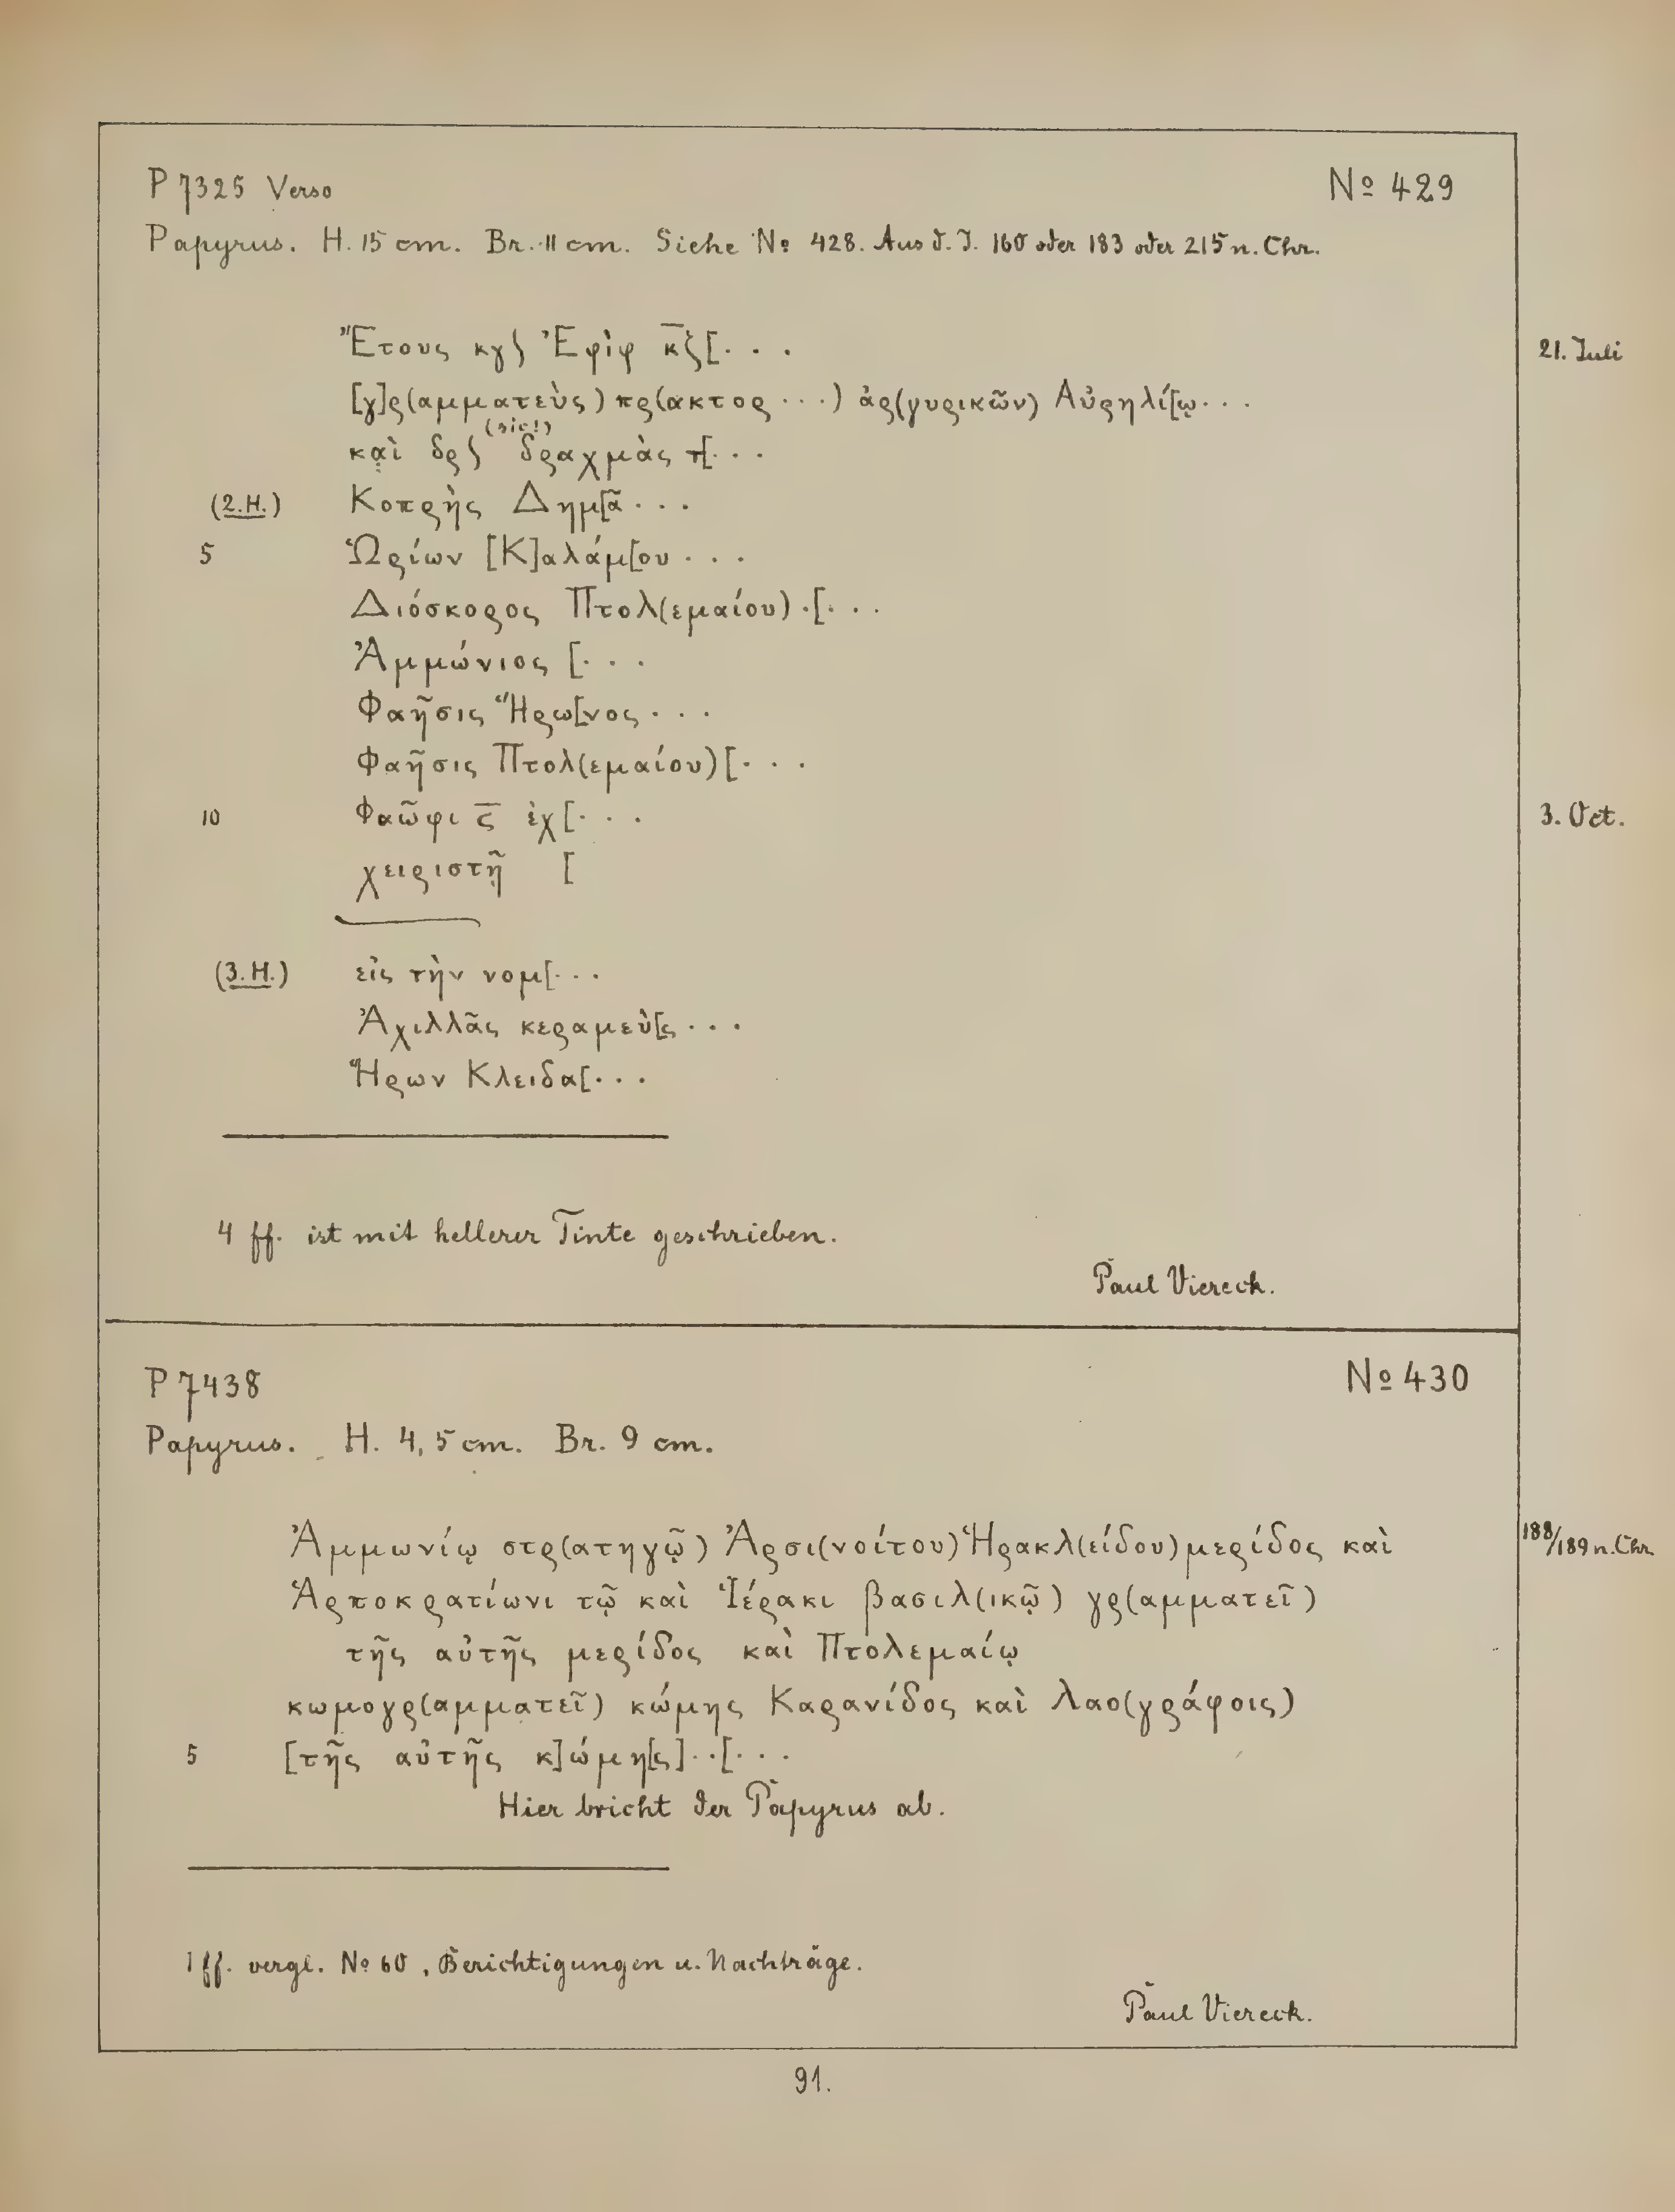 P 7325 Verso
No 429
Papyrus. H. 15 cm. Br. 11 cm. Siehe No 428. Aus d. J. 160 oder 183 oder 215 n. Chr.
Ἔτους κγ∫ Ἐφὶφ κ̅ζ̅[. . .
21. Juli
[γ]ρ(αμματεὺς) πρ(ακτορ ...) ἀρ(γυρικῶν) Αὐρηλί[ῳ. . .
(sic!)
κα̣ὶ δρ∫ δραχμὰς τ[. . .
(2. H.) Κοπρὴς Δημ[ᾶ . . .
5 Ὡρίων [Κ]αλάμ[ου . . .
Διόσκορος Πτολ(εμαίου) .[. . .
Ἀμμώνιος [. . .
Φαῆσις Ἥρω[νος . . .
Φαῆσις Πτολ(εμαίου) [. . .
10 Φαῶφι ϛ̅ ἐχ[. . .
3. Oct.
χειριστῇ [
(3. H.) εἰς τὴν νομ[. . .
Ἀχιλλᾶς κεραμεὺ[ς . . .
Ἥρων Κλειδα[. . .
4 ff. ist mit hellerer Tinte geschrieben.
Paul Viereck.
P 7438
No 430
Papyrus. H. 4,5 cm. Br. 9 cm.
Ἀμμωνίῳ στρ(ατηγῷ) Ἀρσι(νοίτου) Ἡρακλ(είδου) μερίδος καὶ
188/189 n. Chr.
Ἁρποκρατίωνι τῷ καὶ Ἱέρακι βασιλ(ικῷ) γρ(αμματεῖ)
τῆς αὐτῆς μερίδος καὶ Πτολεμαίῳ
κωμογρ(αμματεῖ) κώμης Καρανίδος καὶ λαο(γράφοις)
5 [τῆς αὐτῆς κ]ώμη[ς]..[. . .
Hier bricht der Papyrus ab.
1 ff. vergl. No 60, Berichtigungen u. Nachträge.
Paul Viereck.
91.